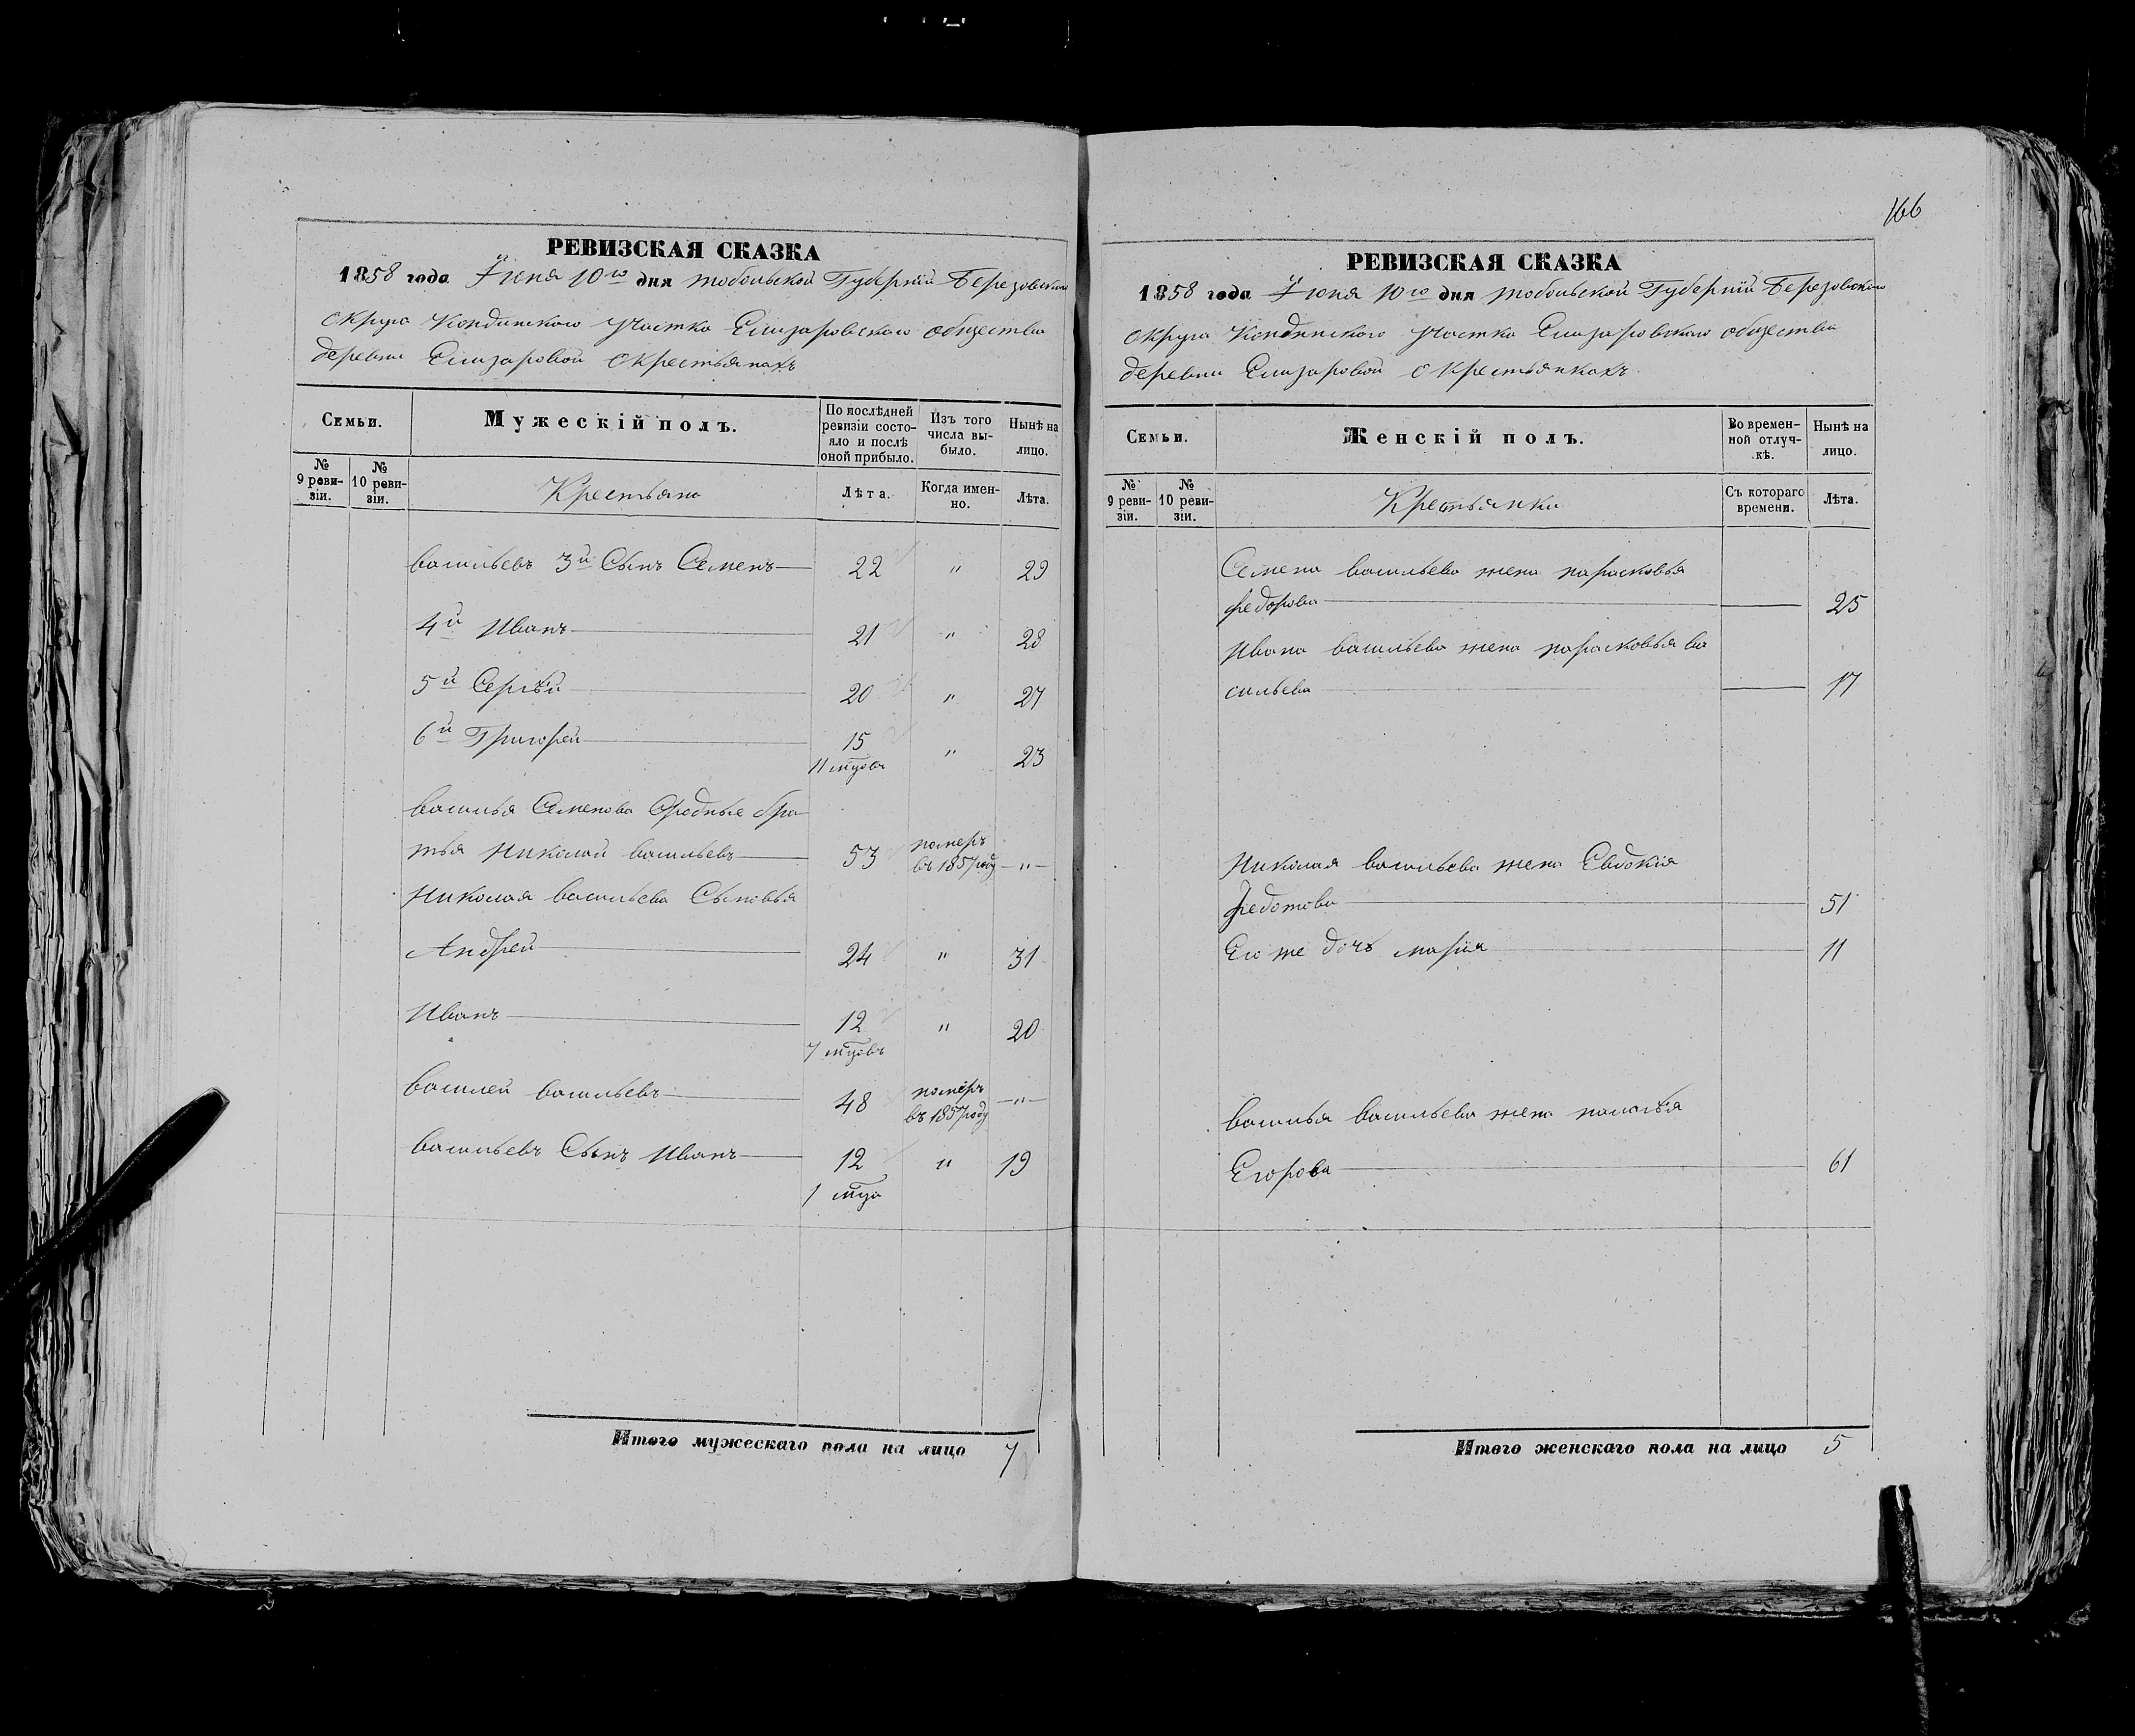 РЕВИЗСКАЯ СКАЗКА
1858 года Іюня 10го дня тобольской Губерніи Березовского
округа Кондинского участка Елизаровского общества
деревни Елизаровой о крестьянахъ
Семьи.
Мужескій полъ.
По послѣдней ревизіи состояло и послѣ оной прибыло.
Изъ того числа выбыло.
Нынѣ на лицо.
№ 9 ревизіи.
№ 10 ревизіи.
Крестьяна
Лѣта.
Когда именно.
Лѣта.
васильевъ 3й Сынъ Семенъ 22 " 29
4й Иванъ 21 " 28
5й Сергѣй 20 " 27
6й Григорей 15 " 23
11 мцовъ
василья Семенова Сродные бра
тья Николай васильевъ 53 померъ въ 1857 году — " —
Николая васильева Сыновья
Андрей 24 " 31
Иванъ 12 " 20
7 мцовъ
василей васильевъ 48 померъ въ 1857 году — " —
васильевъ Сынъ Иванъ 12 " 19
1 мца
Итого мужескаго пола на лицо 7
166
РЕВИЗСКАЯ СКАЗКА
1858 года Іюня 10го дня тобольской Губерніи Березовского
округа Кондинского участка Елизаровского общества
деревни Елизаровой о крестьянкахъ
Семьи.
Женскій полъ.
Во временной отлучкѣ.
Нынѣ на лицо.
№ 9 ревизіи.
№ 10 ревизіи.
Крестьянки
Съ котораго времени.
Лѣта.
Семена васильева жена парасковья
федорова — 25
Ивана васильева жена парасковья ва
сильева — 17
Николая васильева жена Евдокія
федотова 51
Его же дочь марія 11
василья васильева жена
Егорова 61
Итого женскаго пола на лицо 5